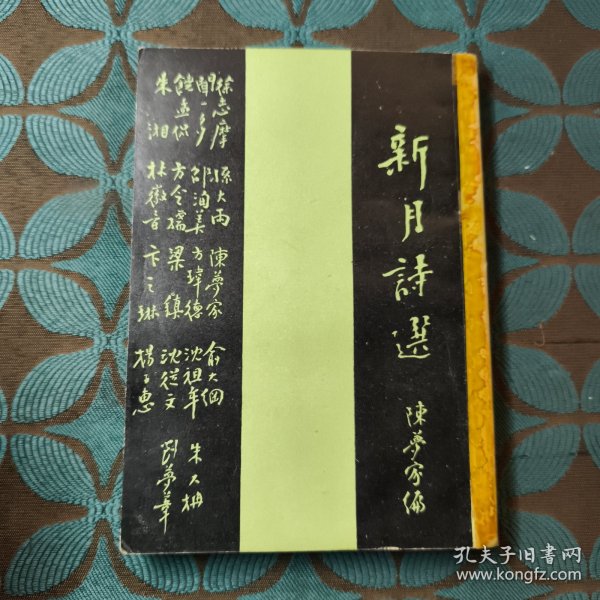 新月詩選
陳夢家編
徐志摩 孫大雨 陳夢家 俞大綱 朱大枏
聞一多 邵洵美 方瑋德 沈祖牟
饒孟侃 方令孺 梁鎮 沈從文 劉夢葦
朱湘 林徽音 卞之琳 楊子惠
孔夫子旧书网
www.kongfz.com